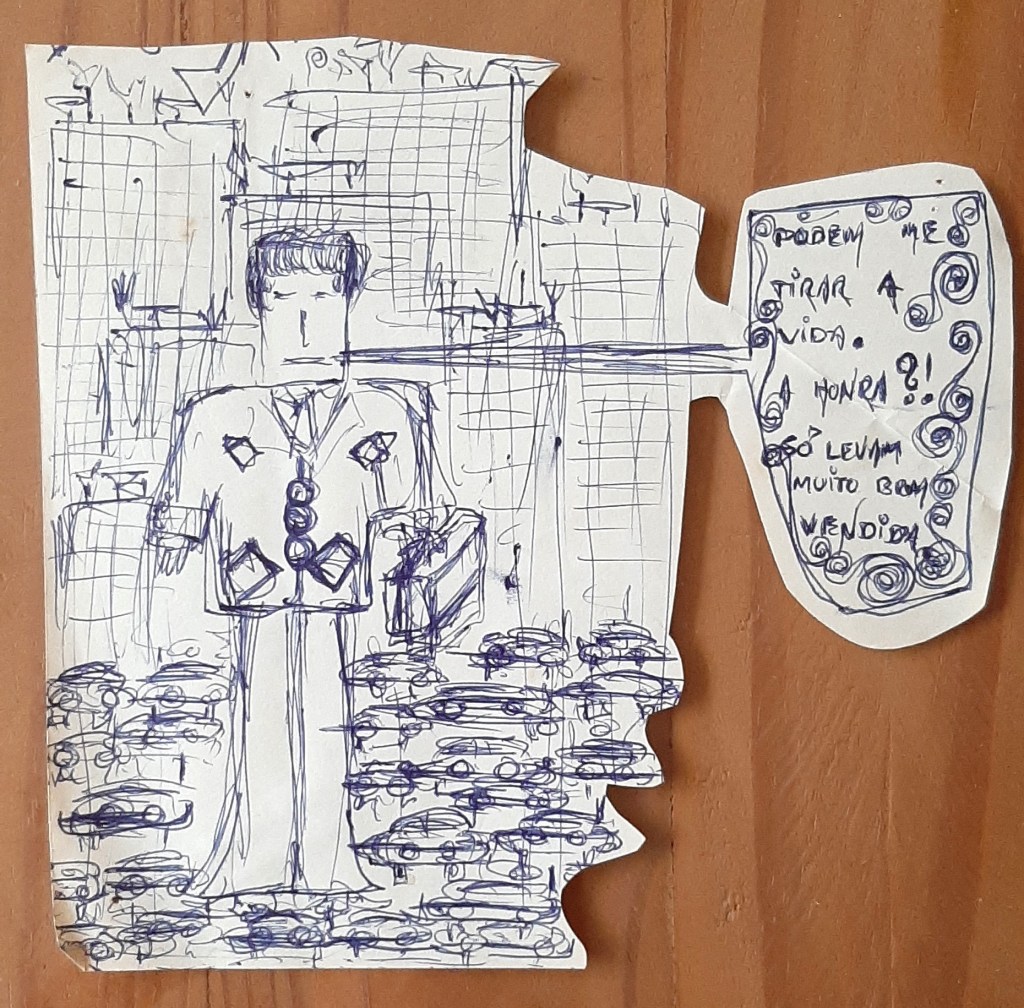 PODEM ME
TIRAR A
VIDA.
A HONRA?!
SÓ LEVAM
MUITO BEM
VENDIDA